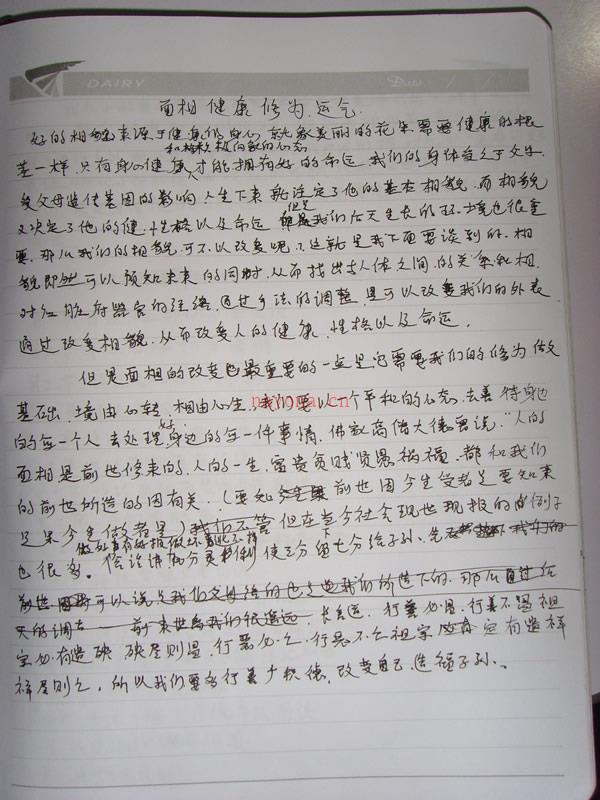 DAIRY
Date
面相 健康 修为 运气
好的相貌来源于健康的身心 就象美丽的花朵需要健康的根
和枝条 积极向上的心态
茎一样,只有身心健康才能拥有好的命运 我们的身体受之于父母
受父母遗传基因的影响 人生下来就注定了他的基本相貌 而相貌
但是
又决定了他的健康 性格以及命运 我们后天生长的环境也很重
要,那么我们的相貌可不以改变呢?这就是我下面要谈到的,相
貌即然可以预知未来的同时,从而找出人体之间的关系和相
对应脏府器官的经络 通过手法的调整 是可以改变我们的外表
通过改变相貌,从而改变人的健康 性格以及命运,
但是面相的改变最重要的一点是它需要我们的修为做
基础,境由心转,相由心生,我们要以一个平和的心态,去善待身边
的每一个人 去处理好身边的每一件事情,佛教高僧大德曾说,"人的
面相是前世修来的,人的一生,富贵贫贱贤愚祸福 都和我们
的前世所造的因有关,(要知前世因今生受者是 要知来
世果今生做者是) 我们不管 但在当今社会现世现报的例子
也很多。
俗话讲
使三分 留七分给子孙,
可以说是我们父母给的也是我们所造下的,那么通过后
天的调
行善必昌,行善不昌祖
宗必有造殃 殃尽则昌,行恶必亡,行恶不亡祖宗必有造祥
祥尽则亡,所以我们要多行善少积德,改变自己 造福子孙。